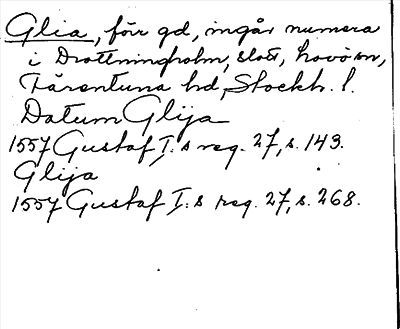 Glia, förr gd, ingår numera
i Drottningholm, slott, Lovö sn,
Färentuna hd, Stockh. l.
Datum Glija
1557 Gustaf I:s reg. 27, s. 143.
Glija
1557 Gustaf I:s reg. 27, s. 268.